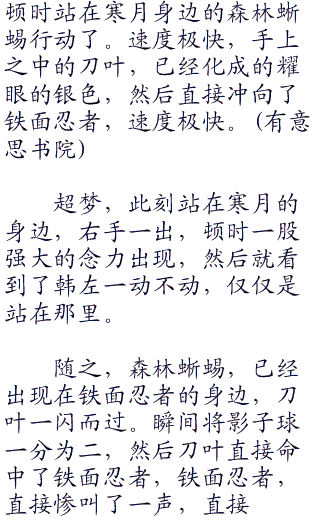 顿时站在寒月身边的森林蜥
蜴行动了。速度极快，手上
之中的刀叶，已经化成的耀
眼的银色，然后直接冲向了
铁面忍者，速度极快。(有意
思书院)
超梦，此刻站在寒月的
身边，右手一出，顿时一股
强大的念力出现，然后就看
到了韩左一动不动，仅仅是
站在那里。
随之，森林蜥蜴，已经
出现在铁面忍者的身边，刀
叶一闪而过。瞬间将影子球
一分为二，然后刀叶直接命
中了铁面忍者，铁面忍者，
直接惨叫了一声，直接